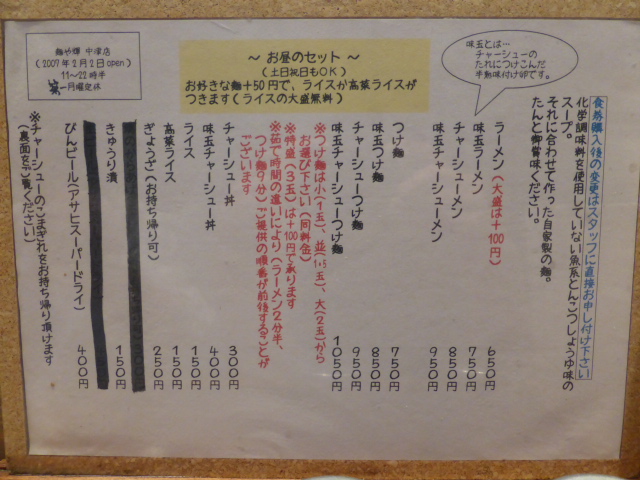 食券購入後の変更はスタッフに直接お申し付け下さい
化学調味料を使用していない魚系とんこつしょうゆ味の
スープ。
それに合わせて作った自家製の麺。
たんと御賞味ください。
味玉とは…
チャーシューの
たれにつけこんだ
半熟味付け卵です。
ラーメン(大盛は+100円) 650円
味玉ラーメン 750円
チャーシューメン 850円
味玉チャーシューメン 950円
~お昼のセット~
(土日祝日もOK)
お好きな麺+50円で、ライスか高菜ライスが
つきます(ライスの大盛無料)
つけ麺 750円
味玉つけ麺 850円
チャーシューつけ麺 950円
味玉チャーシューつけ麺 1050円
※つけ麺は小(1玉)、並(1.5玉)、大(2玉)から
お選び下さい(同料金)
※特盛(3玉)は+100円で承ります
※茹で時間の違いにより(ラーメン2分半、
つけ麺9分)ご提供の順番が前後することが
ございます
チャーシュー丼 300円
味玉チャーシュー丼 400円
ライス 150円
高菜ライス 150円
ぎょうざ(お持ち帰り可) 250円
きゅうり漬 150円
びんビール(アサヒスーパードライ) 400円
※チャーシューのこまぎれをお持ち帰り頂けます
(裏面をご覧ください)
麺や輝 中津店
(2007年2月2日open)
11~22時半
第一月曜定休